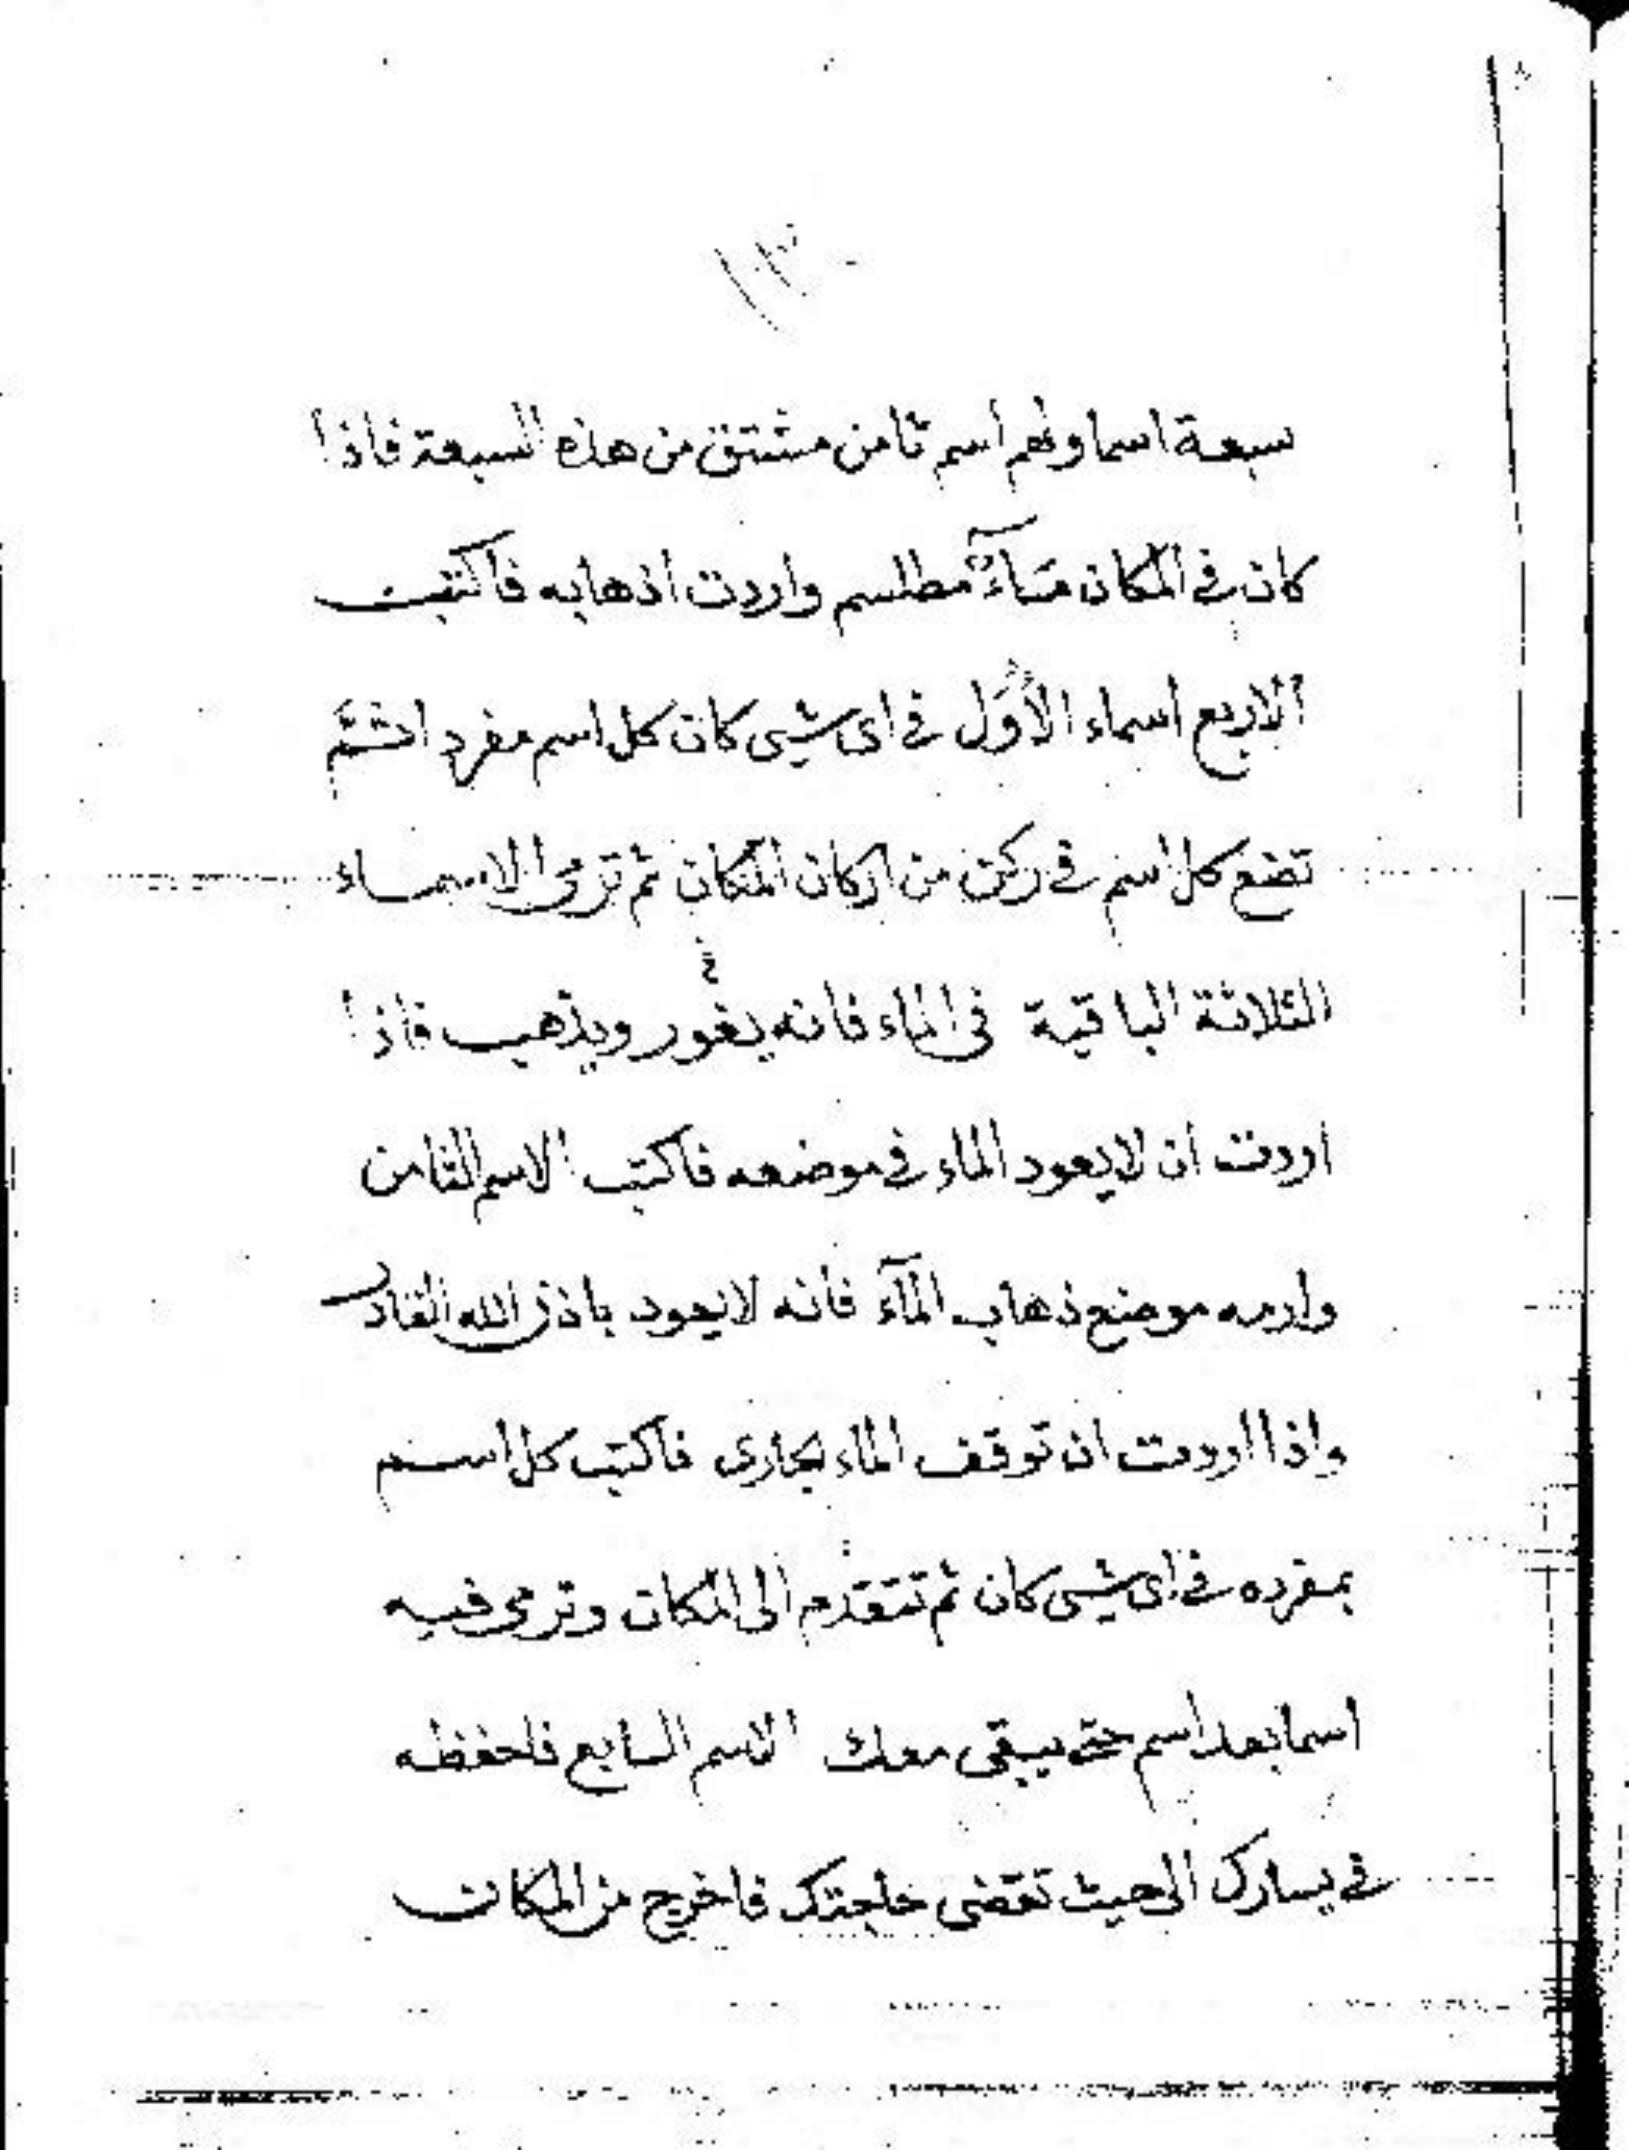 سبعة اسما ولهم اسم ثامن مشتق من هذه السبعة فاذا
كان في المكان مآء مطلسم واردت اذهابه فاكتب
الاربع اسماء الأوَل في اى شيى كان كل اسم مفرد اثم
تضع كل اسم في ركن من اركان المكان ثم ترمى الاسماء
الثلاثة الباقية فى الماء فانه يغور ويذهب فاذا
اردت ان لايعود الماء في موضعه فاكتب الاسم الثامن
وارمه موضع ذهاب المآء فانه لايعود باذن الله القادر
واذا اردت ان توقف الماء بجارى فاكتب كل اسم
بمفرده في اى شيى كان ثم تتقدم الى المكان وترمى فيه
اسما بعد اسم حتى يبقى معك الاسم السابع فاحفظه
في يسارك الى حيث تقضى حاجتك فاخرج من المكان